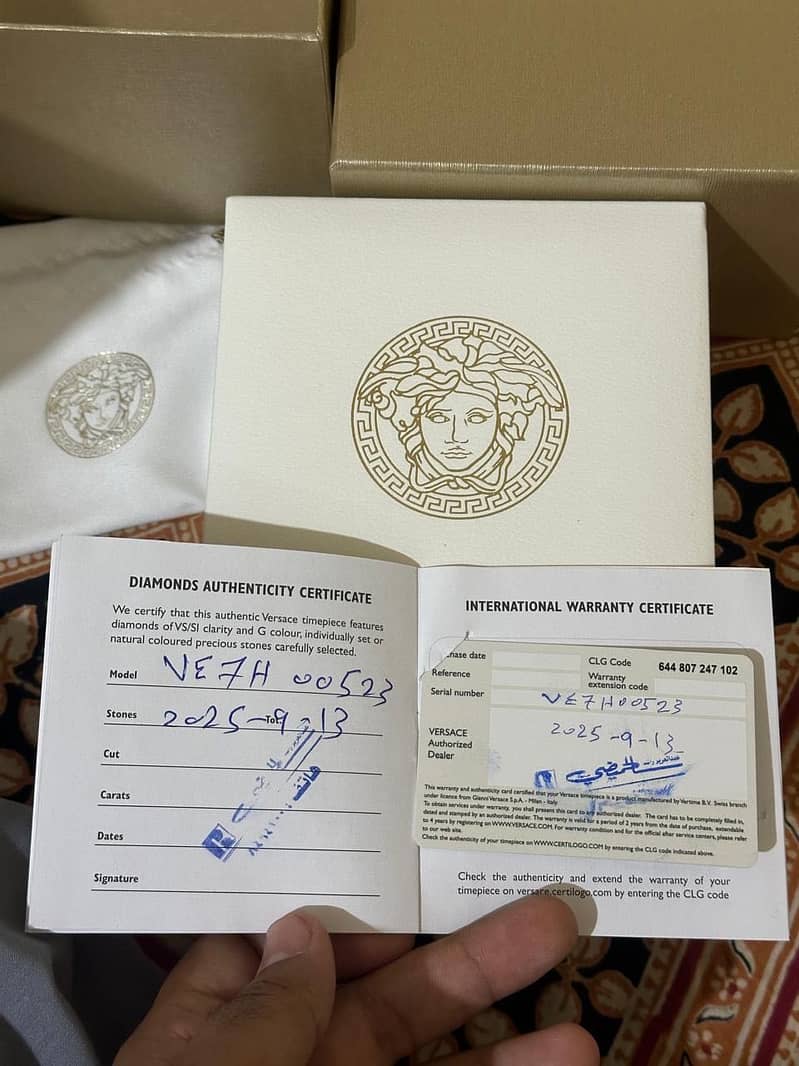 DIAMONDS AUTHENTICITY CERTIFICATE
We certify that this authentic Versace timepiece features
diamonds of VS/SI clarity and G colour, individually set or
natural coloured precious stones carefully selected.
Model VE7H 00523
Stones 2025-9-13
Cut
Carats
Dates
Signature
INTERNATIONAL WARRANTY CERTIFICATE
date
Reference
Serial number VE7H00523
CLG Code 644 807 247 102
Warranty
extension code
2025-9-13
VERSACE
Authorized
Dealer
This warranty and authenticity card certified that your Versace timepiece is a product manufactured by Vertime B.V. Swiss branch
under licence from Gianni Versace S.p.A. - Milan - Italy
To obtain services under warranty, you shall present this card to any authorized dealer. The card has to be completely filled in,
dated and stamped by an authorized dealer. The warranty is valid for a period of 2 years from the date of purchase, extendable
to 4 years by registering on WWW.VERSACE.COM. For warranty condition and for the official after service centers, please refer
to our web site.
Check the authenticity of your timepiece on WWW.CERTILOGO.COM by entering the CLG code indicated above.
Check the authenticity and extend the warranty of your
timepiece on versace.certilogo.com by entering the CLG code